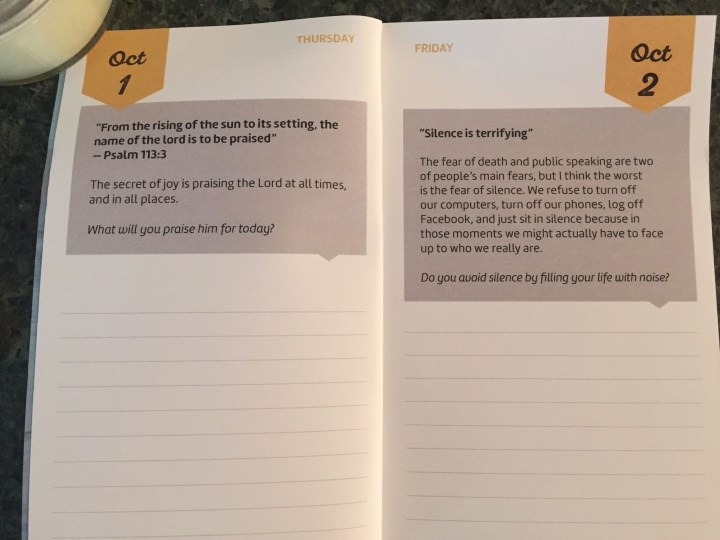 Oct
1
THURSDAY
"From the rising of the sun to its setting, the
name of the lord is to be praised"
– Psalm 113:3
The secret of joy is praising the Lord at all times,
and in all places.
What will you praise him for today?
FRIDAY
Oct
2
"Silence is terrifying"
The fear of death and public speaking are two
of people's main fears, but I think the worst
is the fear of silence. We refuse to turn off
our computers, turn off our phones, log off
Facebook, and just sit in silence because in
those moments we might actually have to face
up to who we really are.
Do you avoid silence by filling your life with noise?